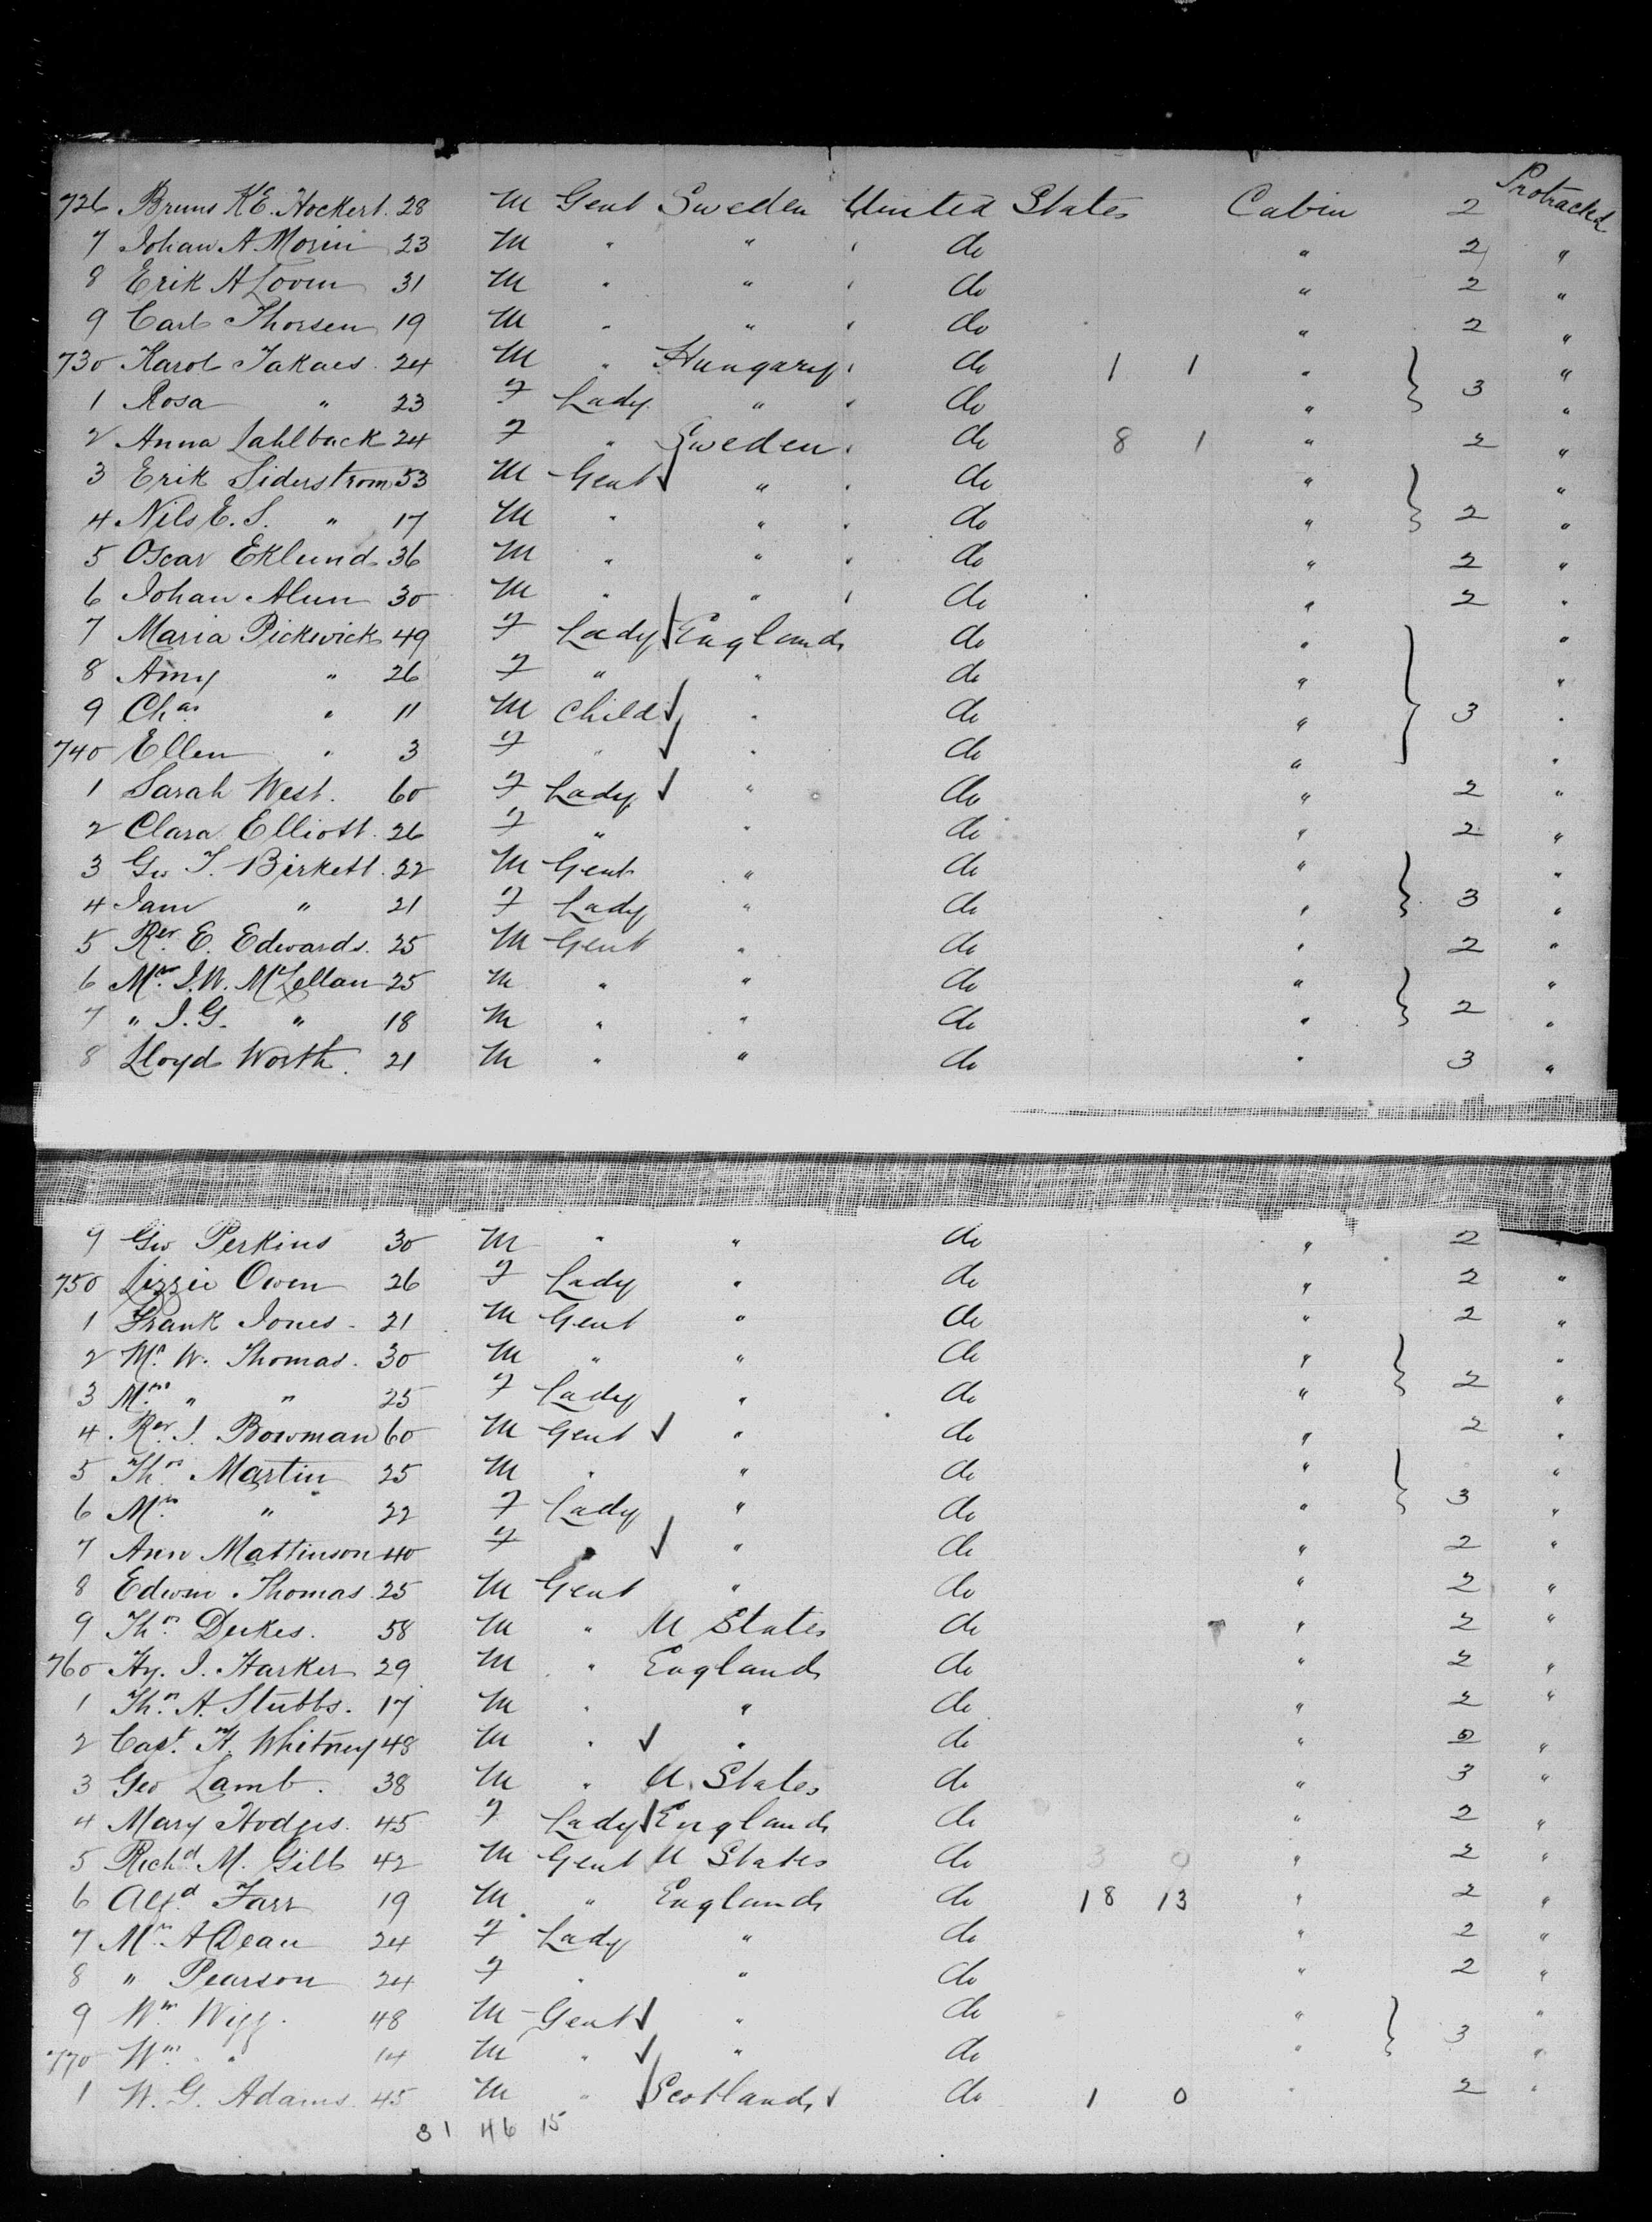 726 Bruno K E. Hockert. 28 M Gent Sweden United States Cabin 2 Protracted
7 Johan A. Morin 23 M " " ' do " 2 "
8 Erik A Loven 31 M " " ' do " 2 "
9 Carl Thorsen 19 M " " ' do " 2 "
730 Karol Takacs. 24 M " Hungary ' do 1 1 " "
1 Rosa " 23 F Lady " ' do " 3 "
2 Anna Dahlback 24 F " Sweden ' do 8 1 " 2 "
3 Erik Siderstrom 53 M Gent ✓ " ' do " "
4 Nils E. S. " 17 M " " ' do " 2 "
5 Oscar Eklund 36 M " " ' do " 2 "
6 Johan Alun 30 M " " ' do " 2 "
7 Maria Pickwick 49 F Lady ✓ England do " "
8 Amy " 26 F " " do " "
9 Chas " 11 M Child ✓ " do " 3 "
740 Ellen " 3 F " ✓ " do " "
1 Sarah West. 60 F Lady ✓ " do " 2 "
2 Clara Elliott. 26 F " " do " 2 "
3 Geo T. Birkett. 22 M Gent " do " "
4 Jane " 21 F Lady " do " 3 "
5 Rev. E. Edwards. 25 M Gent " do " 2 "
6 Mr. J. W. McLellan 25 M " " do " "
7 " J. G. " 18 M " " do " 2 "
8 Lloyd Worth. 21 M " " do " 3 "
9 Geo Perkins 30 M " " do " 2 "
750 Lizzie Owen 26 F Lady " do " 2 "
1 Frank Jones - 21 M Gent " do " 2 "
2 Mr. W. Thomas. 30 M " " do " "
3 Mrs. " " 25 F Lady " do " 2 "
4 Rev. J. Bowman 60 M Gent ✓ " do " 2 "
5 Thos. Martin 25 M " " do " "
6 Mrs. " 22 F Lady " do " 3 "
7 Ann Mattinson 40 F " ✓ " do " 2 "
8 Edwin Thomas. 25 M Gent " do " 2 "
9 Thos. Deekes. 58 M " U States do " 2 "
760 Hy. J. Harker 29 M " England do " 2 "
1 Thos. A. Stubbs. 17 M " " do " 2 "
2 Capt. H. Whitney 48 M " ✓ " do " 2 "
3 Geo Lamb. 38 M " U. States do " 3 "
4 Mary Hodges. 45 F Lady ✓ England do " 2 "
5 Richd M. Gill 42 M Gent U States do 3 0 " 2 "
6 Alfd Farr 19 M " England do 18 13 " 2 "
7 Mrs. A Dean 24 F Lady " do " 2 "
8 " Pearson 24 F " " do " 2 "
9 Wm. Wigg. 48 M Gent ✓ " do " "
770 Wm. " 14 M " ✓ " do " 3 "
1 W. G. Adams. 45 M " ✓ Scotland ✓ do 1 0 " 2 "
31 46 15